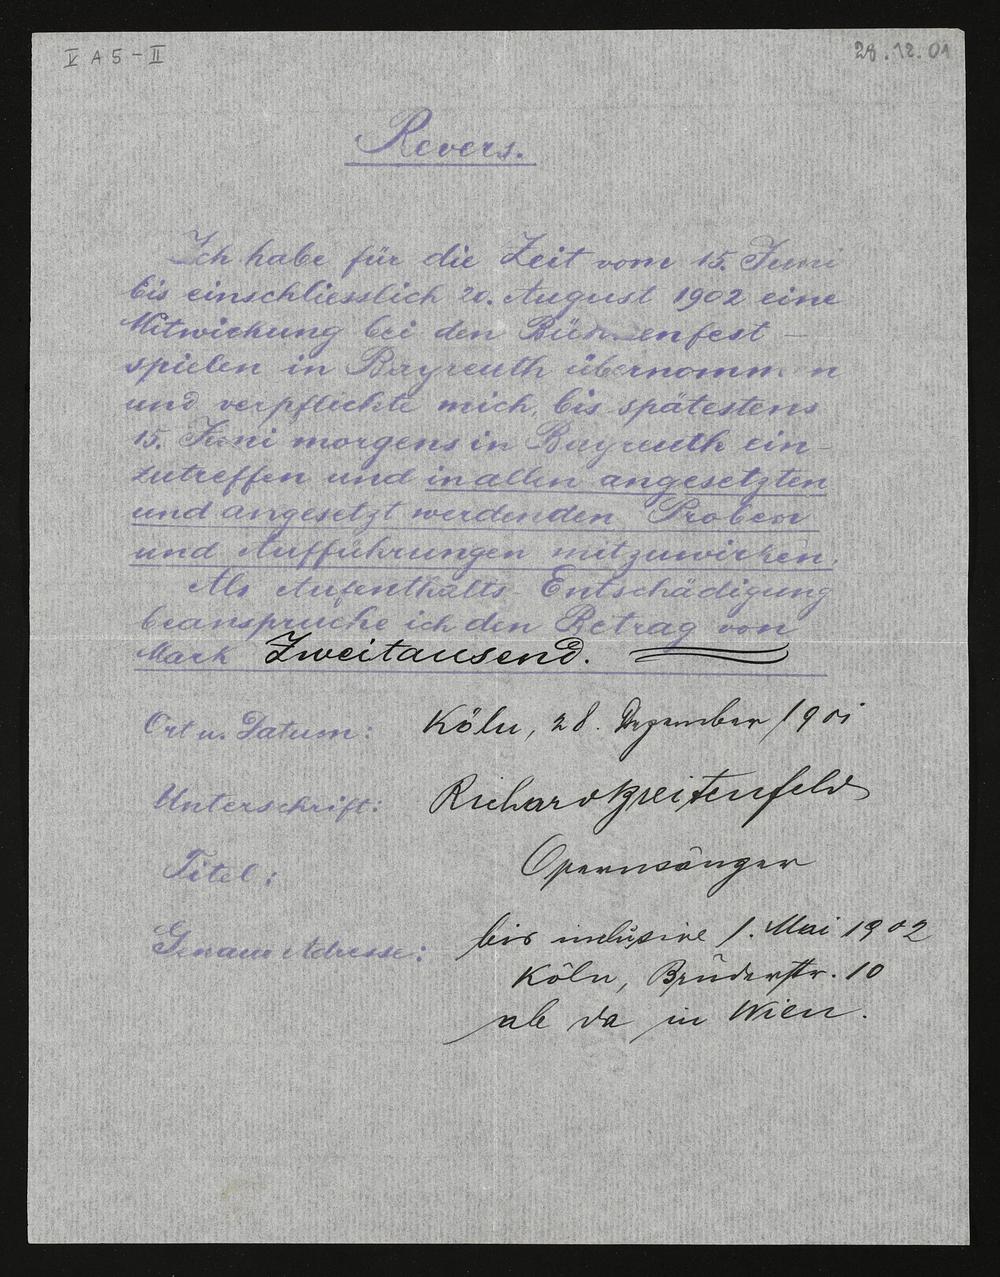 V A 5 - II
28.12.01
Revers.
Ich habe für die Zeit vom 15. Juni
bis einschliesslich 20. August 1902 eine
Mitwirkung bei den Bühnenfest-
spielen in Bayreuth übernommen
und verpflichte mich, bis spätestens
15. Juni morgens in Bayreuth ein-
zutreffen und in allen angesetzten
und angesetzt werdenden Proben
und Aufführungen mitzuwirken.
Als Aufenthalts-Entschädigung
beanspruche ich den Betrag von
Mark Zweitausend.
Ort u. Datum: Köln, 28. Dezember 1901
Unterschrift: Richard Breitenfeld
Titel: Opernsänger
Genaue Adresse: bis inclusive 1. Mai 1902
Köln, Brüderstr. 10
ab da in Wien.